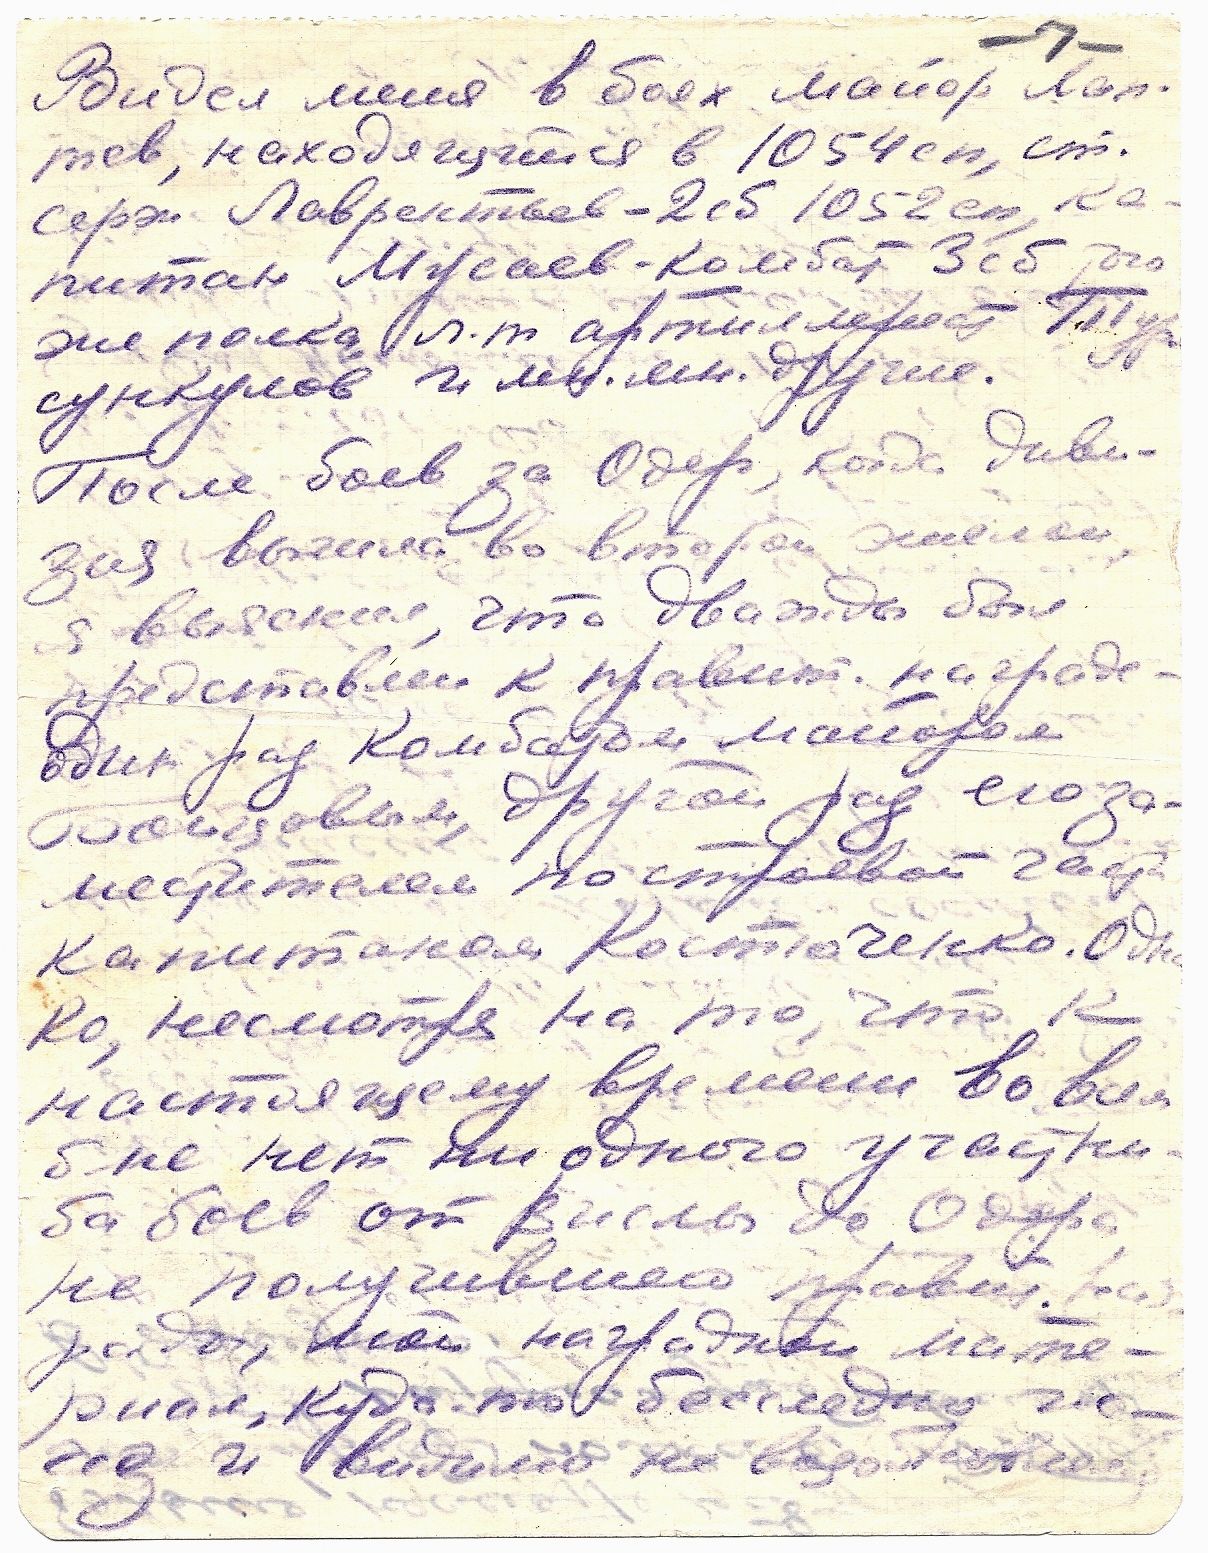 -7-
Видел меня в боях майор Лап-
тев, находящийся в 1054 сп, ст.
серж Лаврентьев - 2сб 1052 сп, ка-
питан Мусаев - комбат 3сб того
же полка, л-т артиллерист Тур-
сункулов и мн. мн. другие.
После боев за Одер, когда диви-
зия вышла во второй эшелон,
я выяснил, что дважды был
представлен к правит. награде -
один раз комбатом майором
другой раз его за-
местителем по строевой части
капитаном Костюченко. Одна
ко, несмотря на то, что к
настоящему времени во всем
б-не нет ни одного участни-
ка боев от Вислы до Одера,
не получившего правит. наг-
рады, мой наградной мате-
риал, куда-то бесследно ис-
чез и видимо не